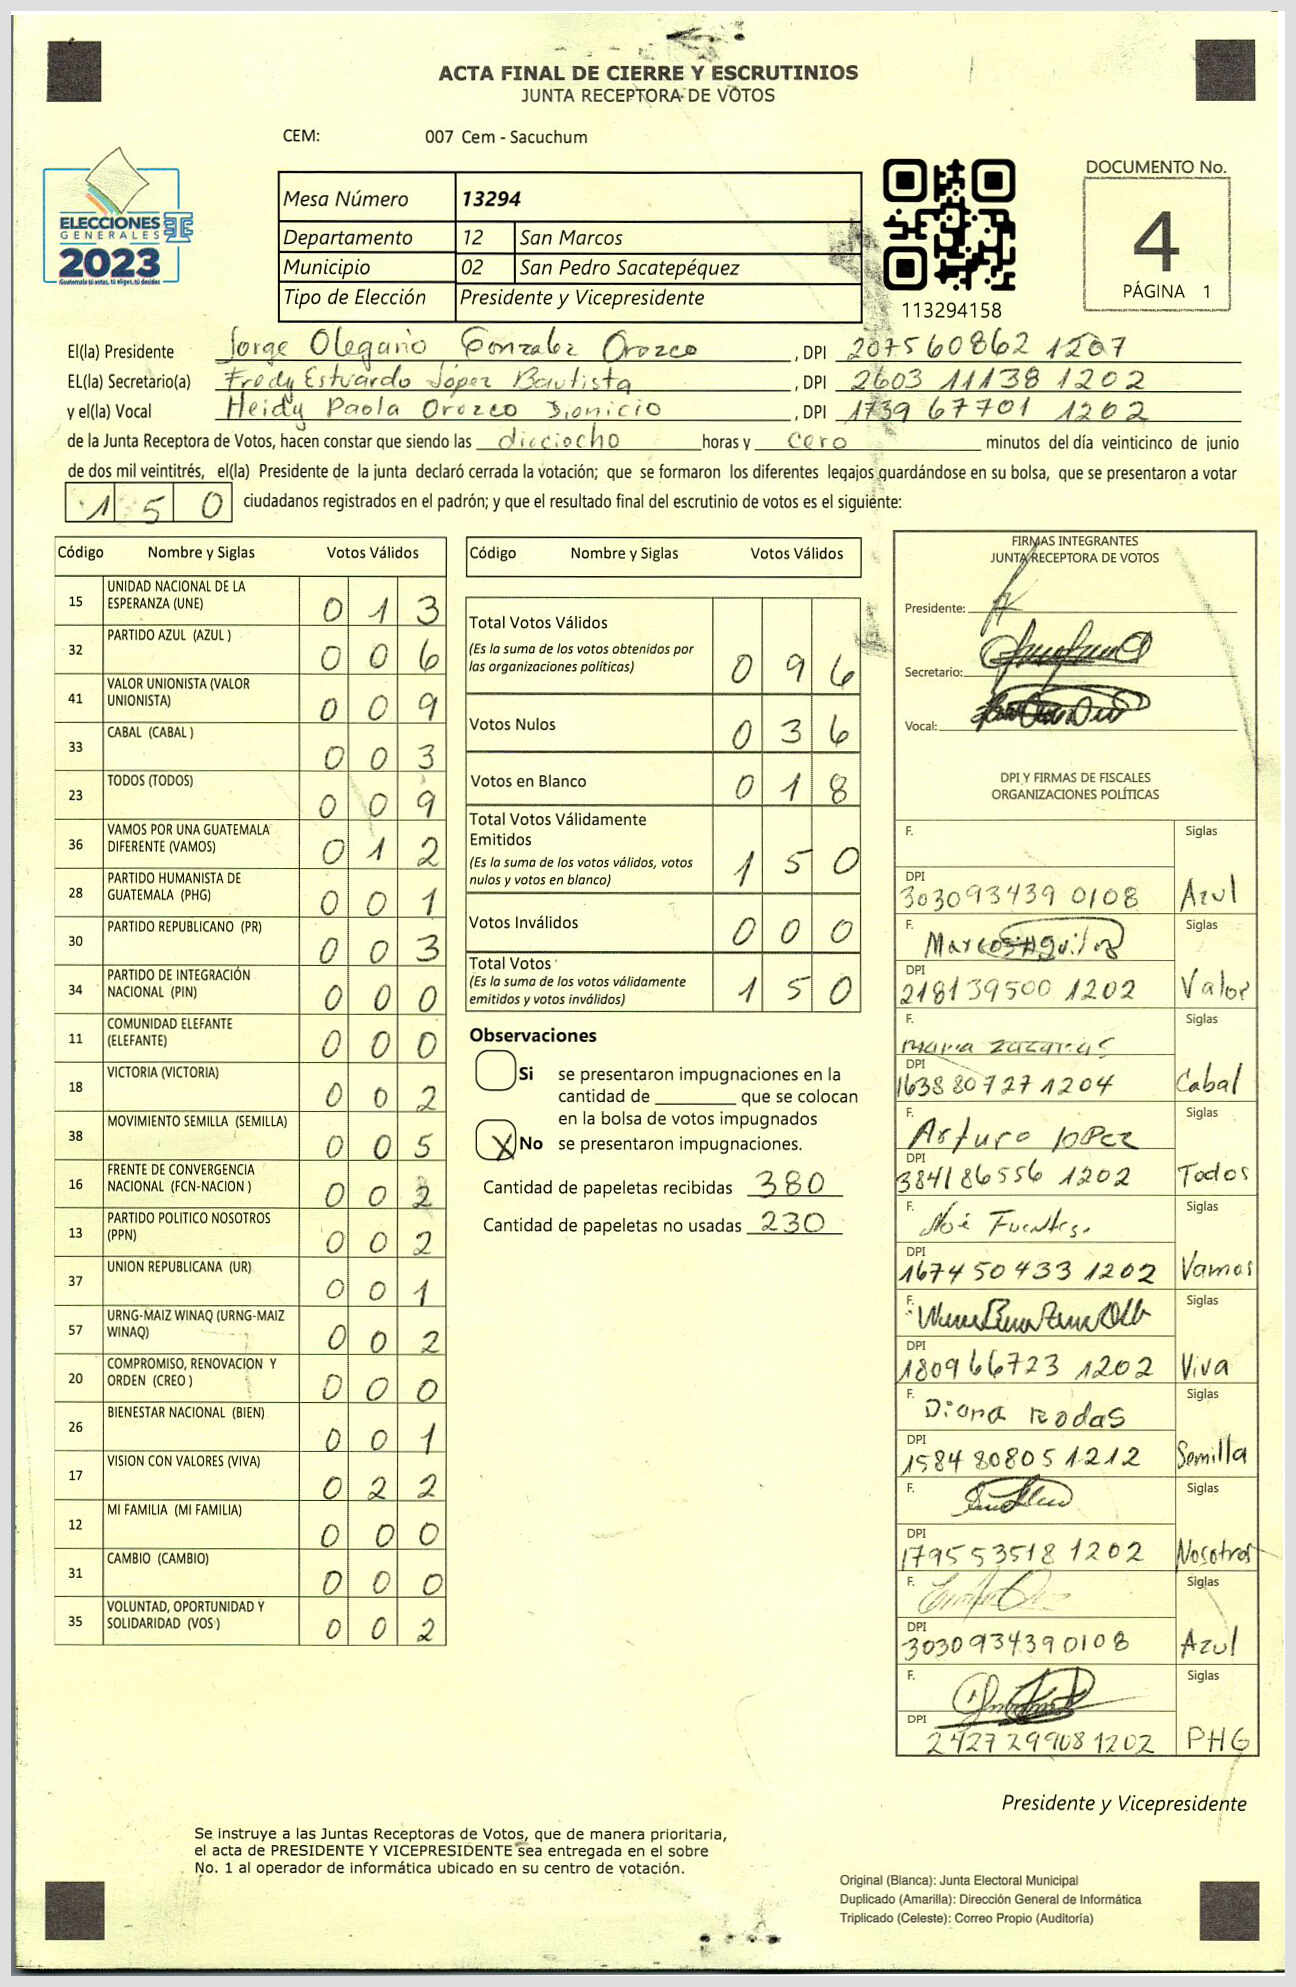 ACTA FINAL DE CIERRE Y ESCRUTINIOS
JUNTA RECEPTORA DE VOTOS
CEM: 007 Cem - Sacuchum
ELECCIONES
GENERALES
2023
Guatemala tú votas, tú eliges, tú decides
Mesa Número 13294
Departamento 12 San Marcos
Municipio 02 San Pedro Sacatepéquez
Tipo de Elección Presidente y Vicepresidente
113294158
DOCUMENTO No.
4
PÁGINA 1
El(la) Presidente Jorge Olegario Gonzalez Orozco, DPI 207560862 1207
EL(la) Secretario(a) Fredy Estuardo López Bautista, DPI 2603 11138 1202
y el(la) Vocal Heidy Paola Orozco Dionicio, DPI 1739 67701 1202
de la Junta Receptora de Votos, hacen constar que siendo las dieciocho horas y cero minutos del día veinticinco de junio
de dos mil veintitrés, el(la) Presidente de la junta declaró cerrada la votación; que se formaron los diferentes legajos guardándose en su bolsa, que se presentaron a votar
150 ciudadanos registrados en el padrón; y que el resultado final del escrutinio de votos es el siguiente:
Código Nombre y Siglas Votos Válidos
15 UNIDAD NACIONAL DE LA ESPERANZA (UNE) 0 1 3
32 PARTIDO AZUL (AZUL ) 0 0 6
41 VALOR UNIONISTA (VALOR UNIONISTA) 0 0 9
33 CABAL (CABAL ) 0 0 3
23 TODOS (TODOS) 0 0 9
36 VAMOS POR UNA GUATEMALA DIFERENTE (VAMOS) 0 1 2
28 PARTIDO HUMANISTA DE GUATEMALA (PHG) 0 0 1
30 PARTIDO REPUBLICANO (PR) 0 0 3
34 PARTIDO DE INTEGRACIÓN NACIONAL (PIN) 0 0 0
11 COMUNIDAD ELEFANTE (ELEFANTE) 0 0 0
18 VICTORIA (VICTORIA) 0 0 2
38 MOVIMIENTO SEMILLA (SEMILLA) 0 0 5
16 FRENTE DE CONVERGENCIA NACIONAL (FCN-NACION ) 0 0 2
13 PARTIDO POLITICO NOSOTROS (PPN) 0 0 2
37 UNION REPUBLICANA (UR) 0 0 1
57 URNG-MAIZ WINAQ (URNG-MAIZ WINAQ) 0 0 2
20 COMPROMISO, RENOVACION Y ORDEN (CREO ) 0 0 0
26 BIENESTAR NACIONAL (BIEN) 0 0 1
17 VISION CON VALORES (VIVA) 0 2 2
12 MI FAMILIA (MI FAMILIA) 0 0 0
31 CAMBIO (CAMBIO) 0 0 0
35 VOLUNTAD, OPORTUNIDAD Y SOLIDARIDAD (VOS ) 0 0 2
Código Nombre y Siglas Votos Válidos
Total Votos Válidos
(Es la suma de los votos obtenidos por
las organizaciones políticas) 0 9 6
Votos Nulos 0 3 6
Votos en Blanco 0 1 8
Total Votos Válidamente
Emitidos
(Es la suma de los votos válidos, votos
nulos y votos en blanco) 1 5 0
Votos Inválidos 0 0 0
Total Votos
(Es la suma de los votos válidamente
emitidos y votos inválidos) 1 5 0
Observaciones
Si se presentaron impugnaciones en la
cantidad de ________ que se colocan
en la bolsa de votos impugnados
X No se presentaron impugnaciones.
Cantidad de papeletas recibidas 380
Cantidad de papeletas no usadas 230
FIRMAS INTEGRANTES
JUNTA RECEPTORA DE VOTOS
Presidente:
Secretario:
Vocal:
DPI Y FIRMAS DE FISCALES
ORGANIZACIONES POLÍTICAS
F. Siglas
DPI
303093439 0108 Azul
F. Marcos Aguilar Siglas
DPI
218139500 1202 Valor
F. Siglas
Maria
DPI
1638 80727 1204 Cabal
F. Siglas
Arturo lopez
DPI
384186556 1202 Todos
F. Siglas
Noé Fuentes.
DPI
1674 50433 1202 Vamos
F. Siglas
DPI
180966723 1202 Viva
F. Siglas
Diana Rodas
DPI
1584 80805 1212 Semilla
F. Siglas
DPI
179553518 1202 Nosotros
F. Siglas
DPI
303093439 0108 Azul
F. Siglas
DPI
2427 29908 1202 PHG
Presidente y Vicepresidente
Se instruye a las Juntas Receptoras de Votos, que de manera prioritaria,
el acta de PRESIDENTE Y VICEPRESIDENTE sea entregada en el sobre
No. 1 al operador de informática ubicado en su centro de votación.
Original (Blanca): Junta Electoral Municipal
Duplicado (Amarilla): Dirección General de Informática
Triplicado (Celeste): Correo Propio (Auditoría)